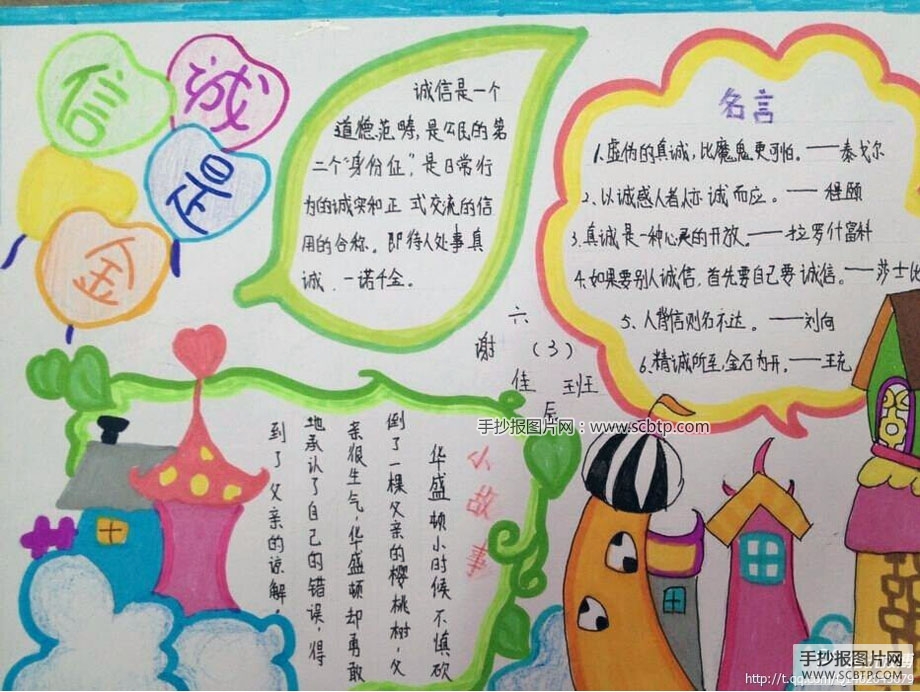 诚
信
是
金
诚信是一个
道德范畴,是公民的第
二个"身份证",是日常行
为的诚实和正式交流的信
用的合称。即待人处事真
诚、一诺千金。
名言
1.虚伪的真诚,比魔鬼更可怕。——泰戈尔
2.以诚感人者,人亦诚而应。——程颐
3.真诚是一种心灵的开放。——拉罗什富科
4.如果要别人诚信,首先要自己要诚信。——莎士比
5、人背信则名不达。——刘向
6.精诚所至,金石为开。——王充
六(3)班
谢佳辰
手抄报图片网:www.scbtp.com
小故事
华盛顿小时候不慎砍
倒了一棵父亲的樱桃树,父
亲很生气,华盛顿却勇敢
地承认了自己的错误,得
到了父亲的谅解。
手抄报图片网
WWW.SCBTP.COM